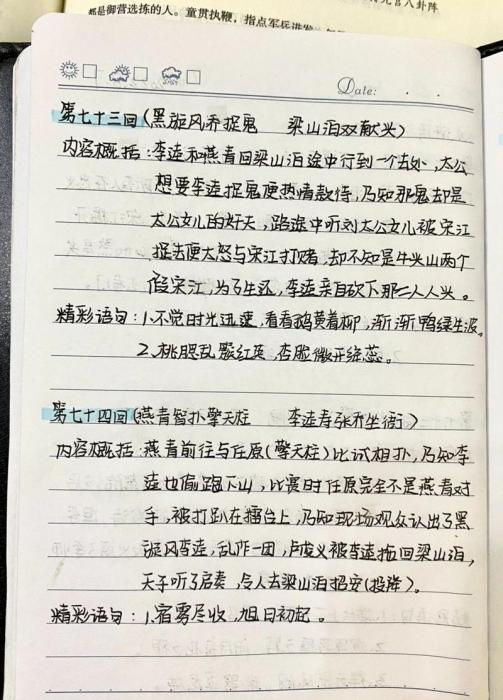 都是御营选拣的人。童贯执鞭，指点军兵进发
八卦阵
Date:
第七十三回(黑旋风乔捉鬼 梁山泊双献头)
内容概括:李逵和燕青回梁山泊途中行到一个去处,太公
想要李逵捉鬼便热情款待,乃知那鬼却是
太公女儿的奸夫,路途中听刘太公女儿被宋江
捉去便大怒与宋江打赌,却不知是牛头山两个
假宋江,为了生还,李逵亲自砍下那二人人头。
精彩语句:1.不觉时光迅速,看看鹅黄着柳,渐渐鸭绿生波。
2.桃腮乱簇红英,杏脸微开绛蕊。
第七十四回(燕青智扑擎天柱 李逵寿张乔坐衙)
内容概括:燕青前往与任原(擎天柱)比试相扑,乃知李
逵也偷跑下山,比赛时任原完全不是燕青对
手,被打趴在擂台上,乃知现场观众认出了黑
旋风李逵,乱作一团,卢俊义被李逵拖回梁山泊,
天子听了启奏,令人去梁山泊招安(投降)。
精彩语句:1.宿雾尽收,旭日初起。